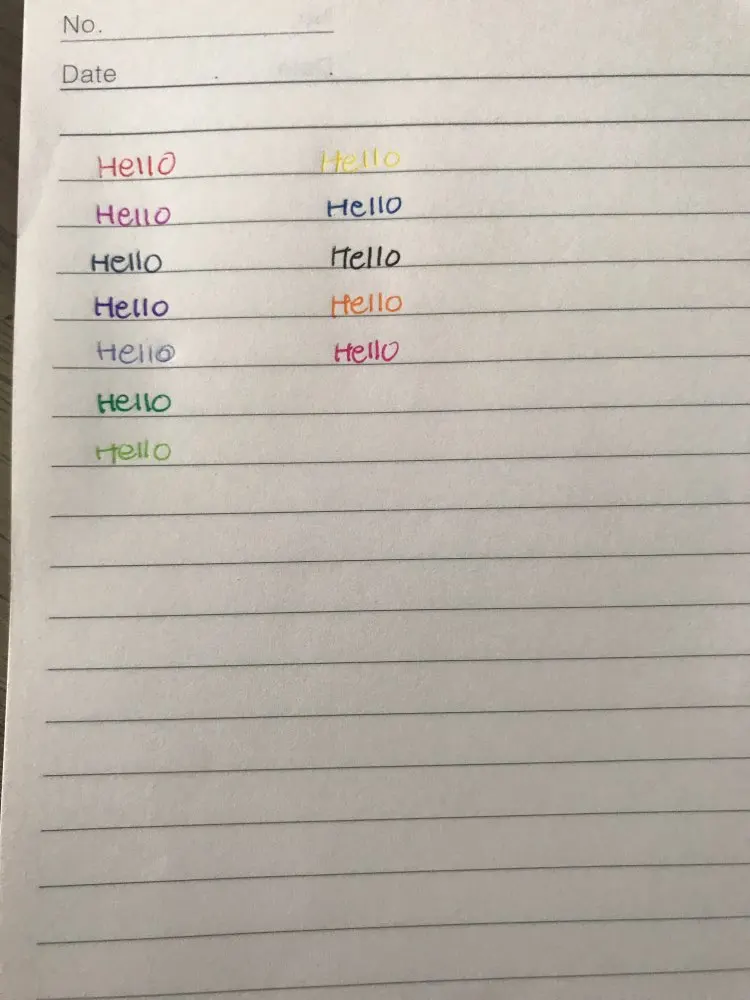 No.
Date
Hello Hello
Hello Hello
Hello Hello
Hello Hello
Hello Hello
Hello
Hello